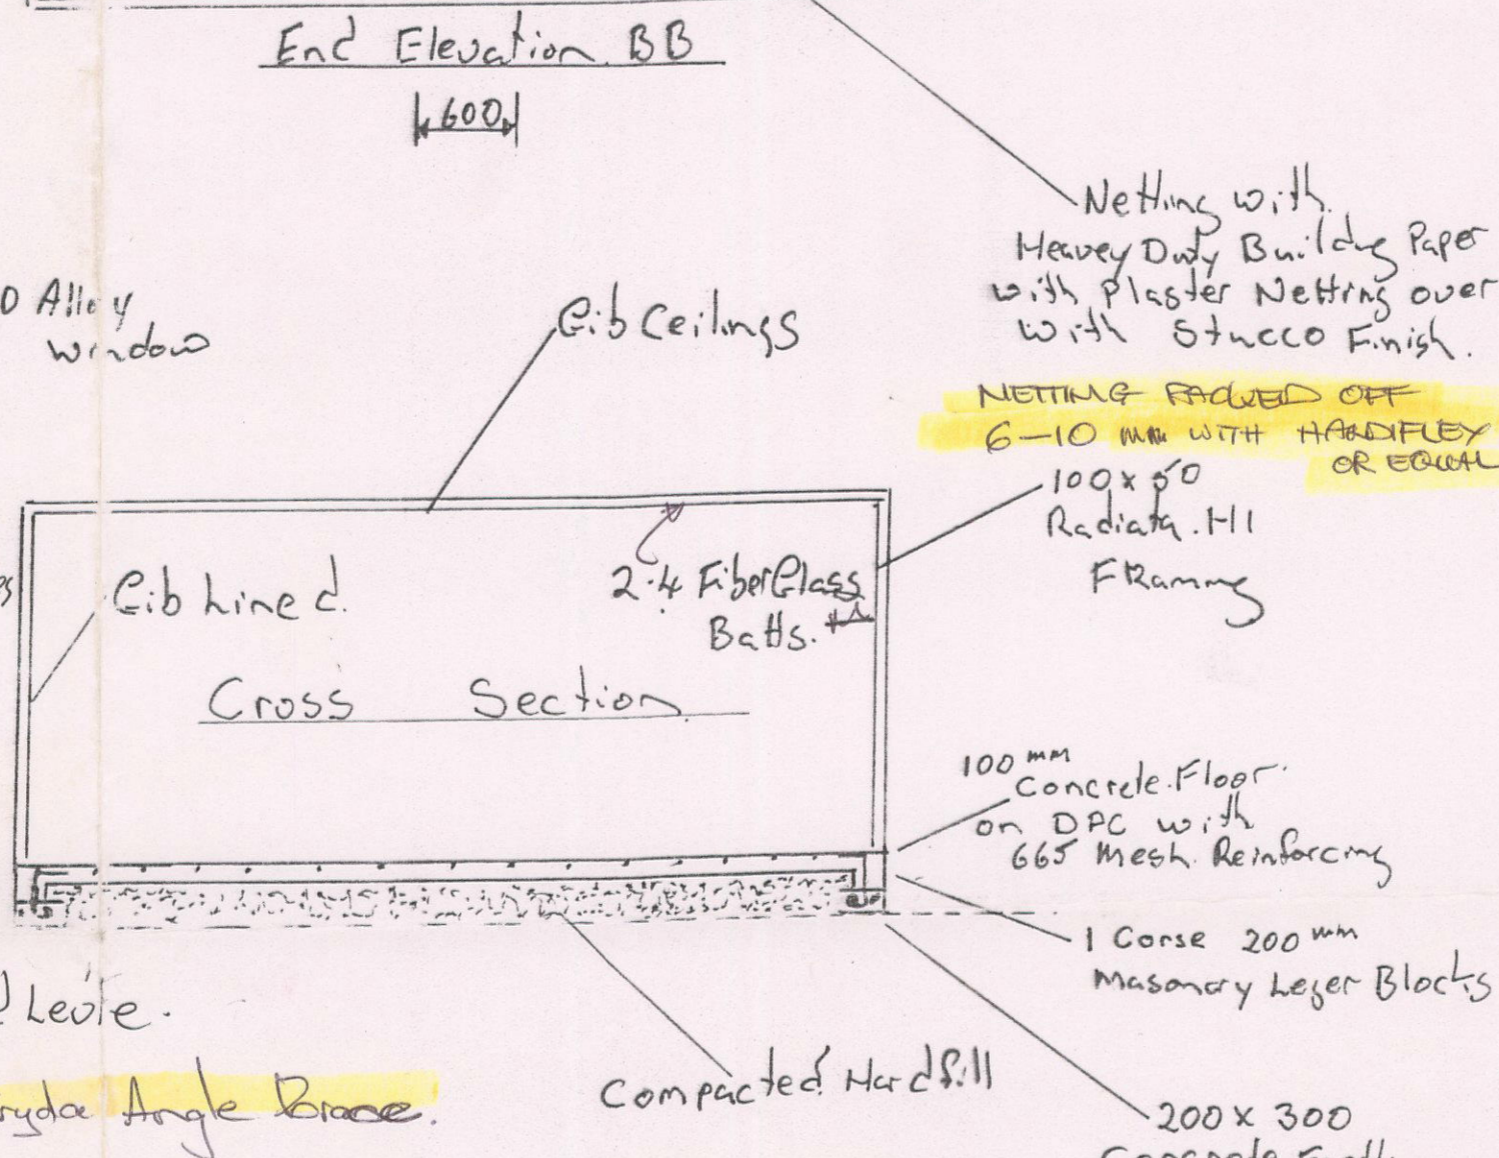 End Elevation BB
600
Netting with
Heavey Duty Building Paper
with Plaster Netting over
with Stucco Finish.
NETTING PACKED OFF
6-10 mm WITH HARDIFLEY
OR EQUAL
D Alloy
window
Gib Ceilings
100 x 50
Radiata. H1
FRaming
Gib Lined.
2.4 FiberGlass
Batts.
Cross Section
100 mm
Concrete Floor.
on DPC with
665 Mesh. Reinforcing
1 Corse 200 mm
Masonary Leger Blocks
Levle.
Compacted Hardfill
Angle Brace.
200 x 300
Concrete